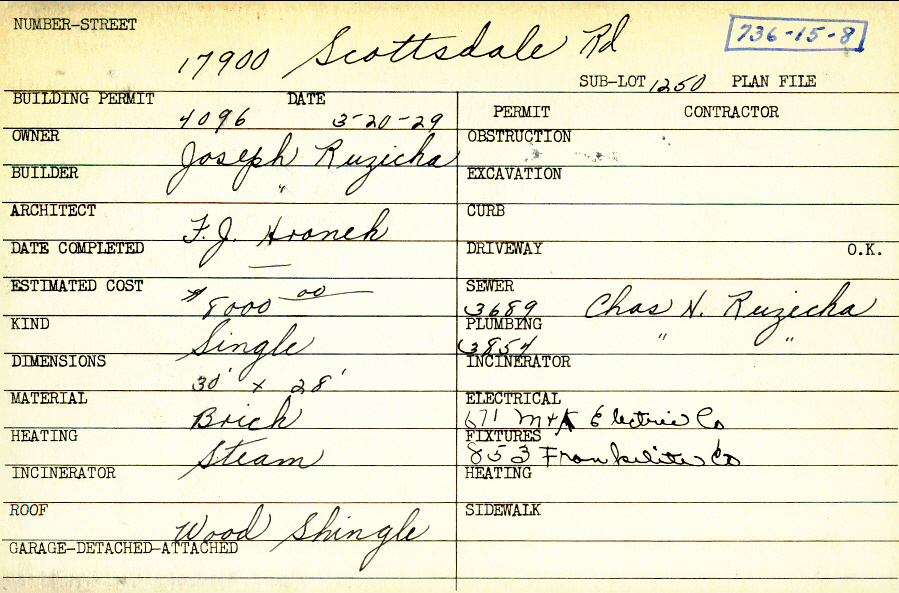 NUMBER-STREET
17900 Scottsdale Rd
736-15-8
SUB-LOT 1250 PLAN FILE
BUILDING PERMIT DATE
4096 3-20-29
PERMIT CONTRACTOR
OWNER
Joseph Ruzicka
OBSTRUCTION
BUILDER
"
EXCAVATION
ARCHITECT
F. J. Hronek
CURB
DATE COMPLETED
—
DRIVEWAY O.K.
ESTIMATED COST
$8000 00
SEWER
3689 Chas N. Ruzicka
KIND
Single
PLUMBING
3854 " "
DIMENSIONS
30' x 28'
INCINERATOR
MATERIAL
Brick
ELECTRICAL
671 M+K Electric Co
HEATING
Steam
FIXTURES
853 Frankelite Co
INCINERATOR
HEATING
ROOF
Wood Shingle
SIDEWALK
GARAGE-DETACHED-ATTACHED